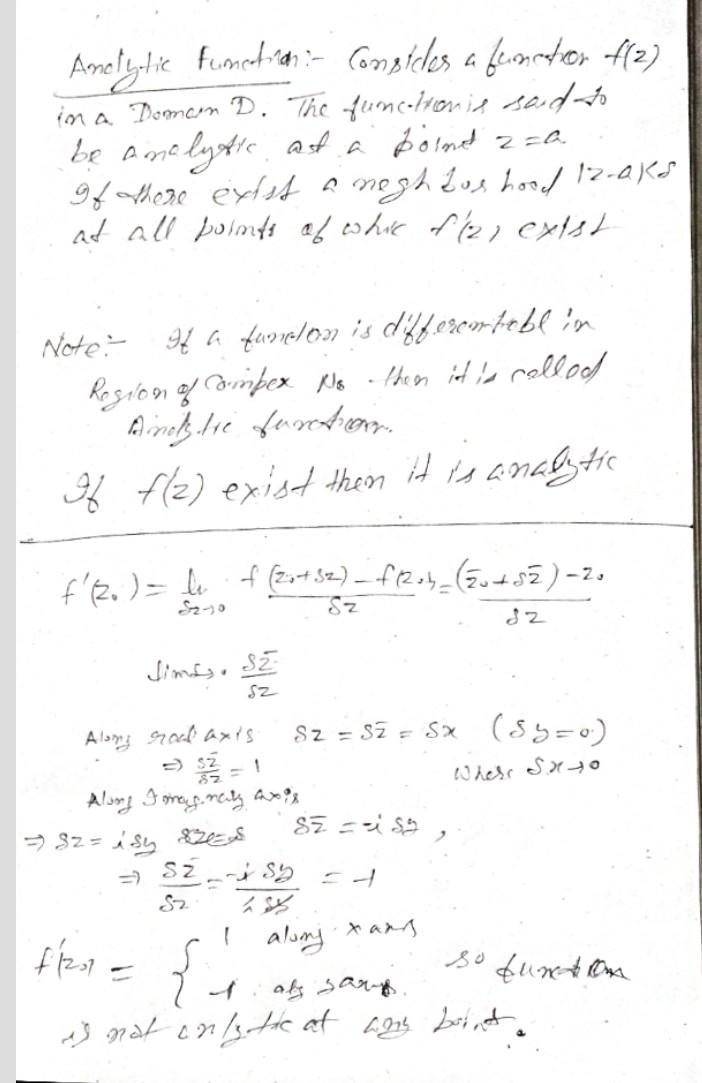 Analytic Function:- Consider a function f(z)
in a Domain D. The function is said to
be analytic at a point z=a
If there exist a neghbourhood |z-a|<δ
at all points of whic f'(z) exist
Note:- If a function is differentiable in
Region of Complex No then it is called
Analytic function.
If f'(z) exist then it is analytic
f'(z₀) = lim δz→0 f(z₀+δz) - f(z₀) / δz = (z̄₀+δz̄) - z₀ / δz
δz̄ / δz
Along real axis δz = δz̄ = δx (δy=0)
⇒ δz̄/δz = 1 where δx→0
Along Imaginary axis
⇒ δz = iδy δz̄ = -iδy,
⇒ δz̄/δz = -iδy/iδy = -1
f'(z₀) = { 1 along x axis
-1 y axis. so function
is not analytic at any point.